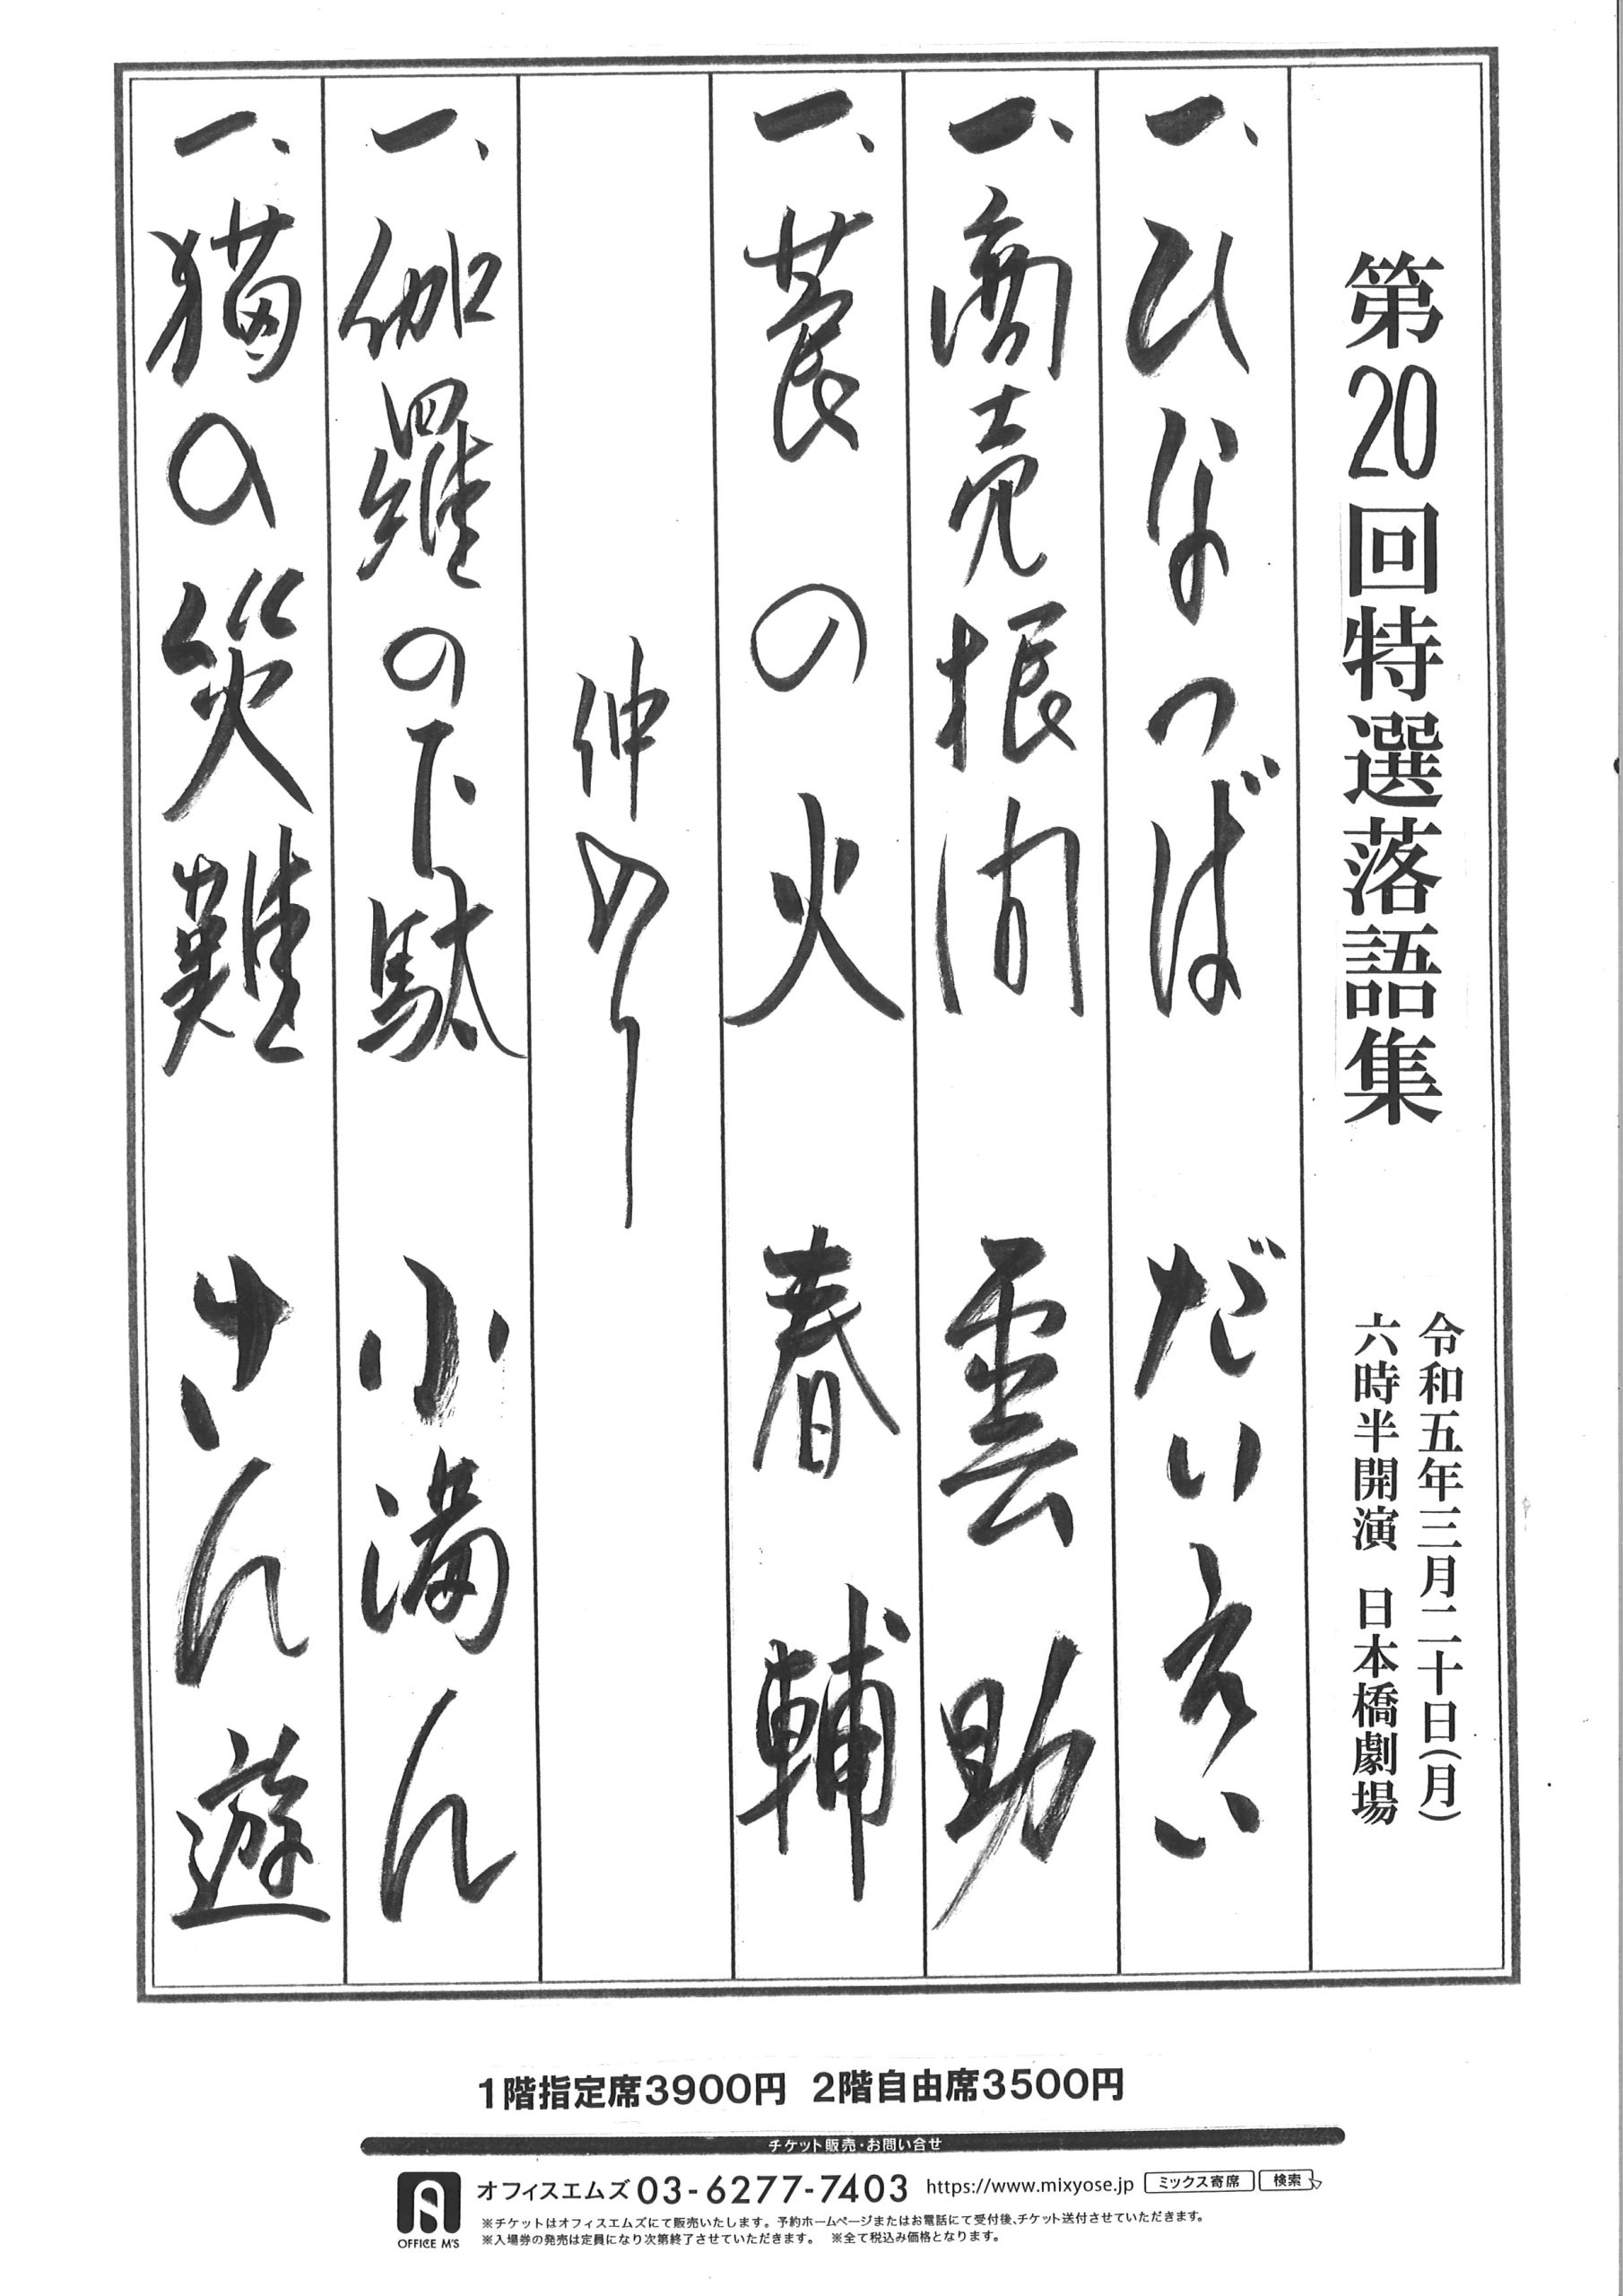 第20回特選落語集
令和五年三月二十日(月)
六時半開演 日本橋劇場
一、ひなつば だいえい
一、商売根問 雲助
一、莨の火 春輔
仲入り
一、伽羅の下駄 小満ん
一、猫の災難 さん遊
1階指定席3900円 2階自由席3500円
チケット販売・お問い合せ
オフィスエムズ 03-6277-7403 https://www.mixyose.jp ミックス寄席 検索
※チケットはオフィスエムズにて販売いたします。予約ホームページまたはお電話にて受付後、チケット送付させていただきます。
※入場券の発売は定員になり次第終了させていただきます。 ※全て税込み価格となります。
OFFICE M'S